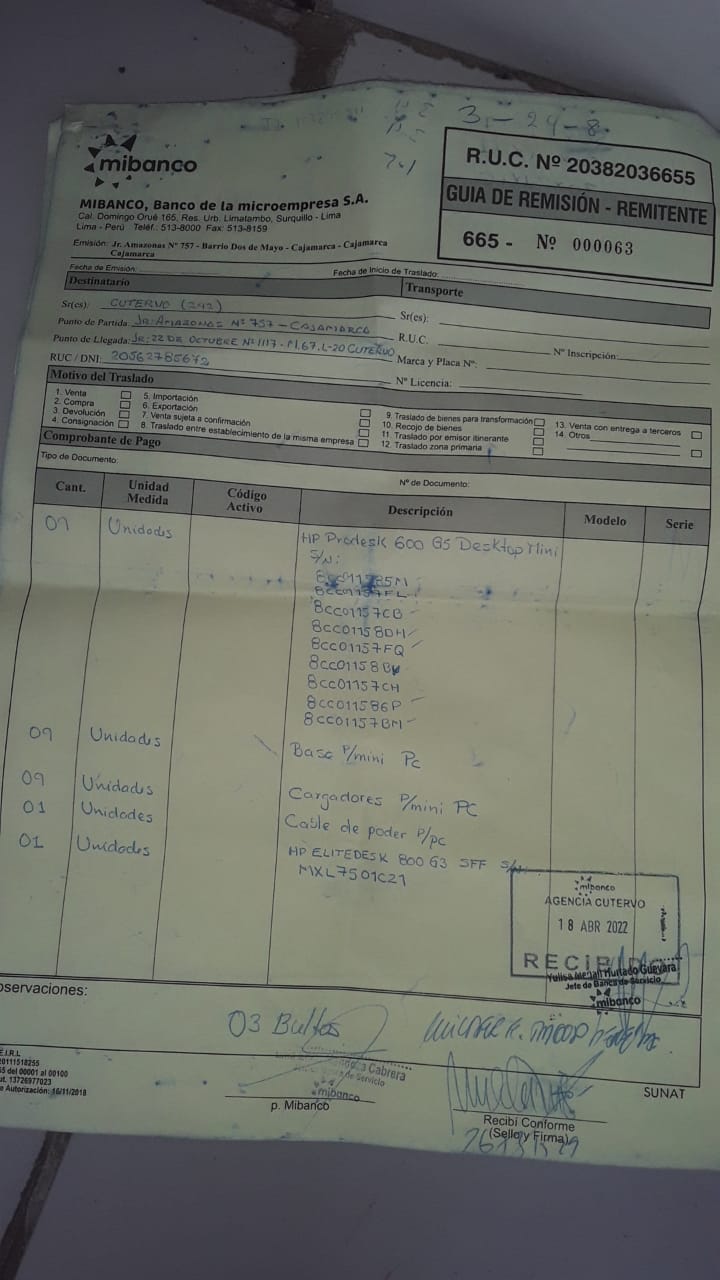 3,-24-8.
mibanco
R.U.C. Nº 20382036655
GUIA DE REMISIÓN - REMITENTE
665 - Nº 000063
MIBANCO, Banco de la microempresa S.A.
Cal. Domingo Orué 165, Res. Urb. Limatambo, Surquillo - Lima
Lima - Perú Teléf.: 513-8000 Fax: 513-8159
Emisión: Jr. Amazonas Nº 757 - Barrio Dos de Mayo - Cajamarca - Cajamarca
Cajamarca
Fecha de Emisión:
Fecha de Inicio de Traslado:
Destinatario
Transporte
Sr(es): CUTERVO (242)
Sr(es):
Punto de Partida: Jr. AMAZONAS Nº 757 - CAJAMARCA
R.U.C.
Nº Inscripción:
Punto de Llegada: Jr: 22 DE OCTUBRE Nº 1117 - M.67.L-20 CUTERVO
Marca y Placa Nº:
RUC / DNI: 20562785672
Nº Licencia:
Motivo del Traslado
1. Venta
2. Compra
3. Devolución
4. Consignación
5. Importación
6. Exportación
7. Venta sujeta a confirmación
8. Traslado entre establecimiento de la misma empresa
9. Traslado de bienes para transformación
10. Recojo de bienes
11. Traslado por emisor itinerante
12. Traslado zona primaria
13. Venta con entrega a terceros
14. Otros
Comprobante de Pago
Tipo de Documento:
Nº de Documento:
Cant. Unidad Medida Código Activo Descripción Modelo Serie
09 Unidades HP Prodesk 600 G5 Desktop Mini
S/N:
8CC01157FL
8CC01157CB
8CC01158DH
8CC01157FQ
8CC01157CH
8CC011586P
8CC01157BM
09 Unidades Base P/mini Pc
09 Unidades Cargadores P/mini PC
01 Unidades Cable de poder P/pc
01 Unidades HP ELITEDESK 800 G3 SFF S/N:
MXL7501C21
mibanco
AGENCIA CUTERVO
18 ABR 2022
RECIBIDO
Yulisa Hurtado Guevara
Jefe de Banca de Servicio
mibanco
Observaciones:
03 Bultos
E.I.R.L
20111518255
65 del 00001 al 00100
ut. 13726977023
e Autorización: 16/11/2018
Cabrera
de Servicio
mibanco
p. Mibanco
Recibí Conforme
(Sello y Firma)
SUNAT